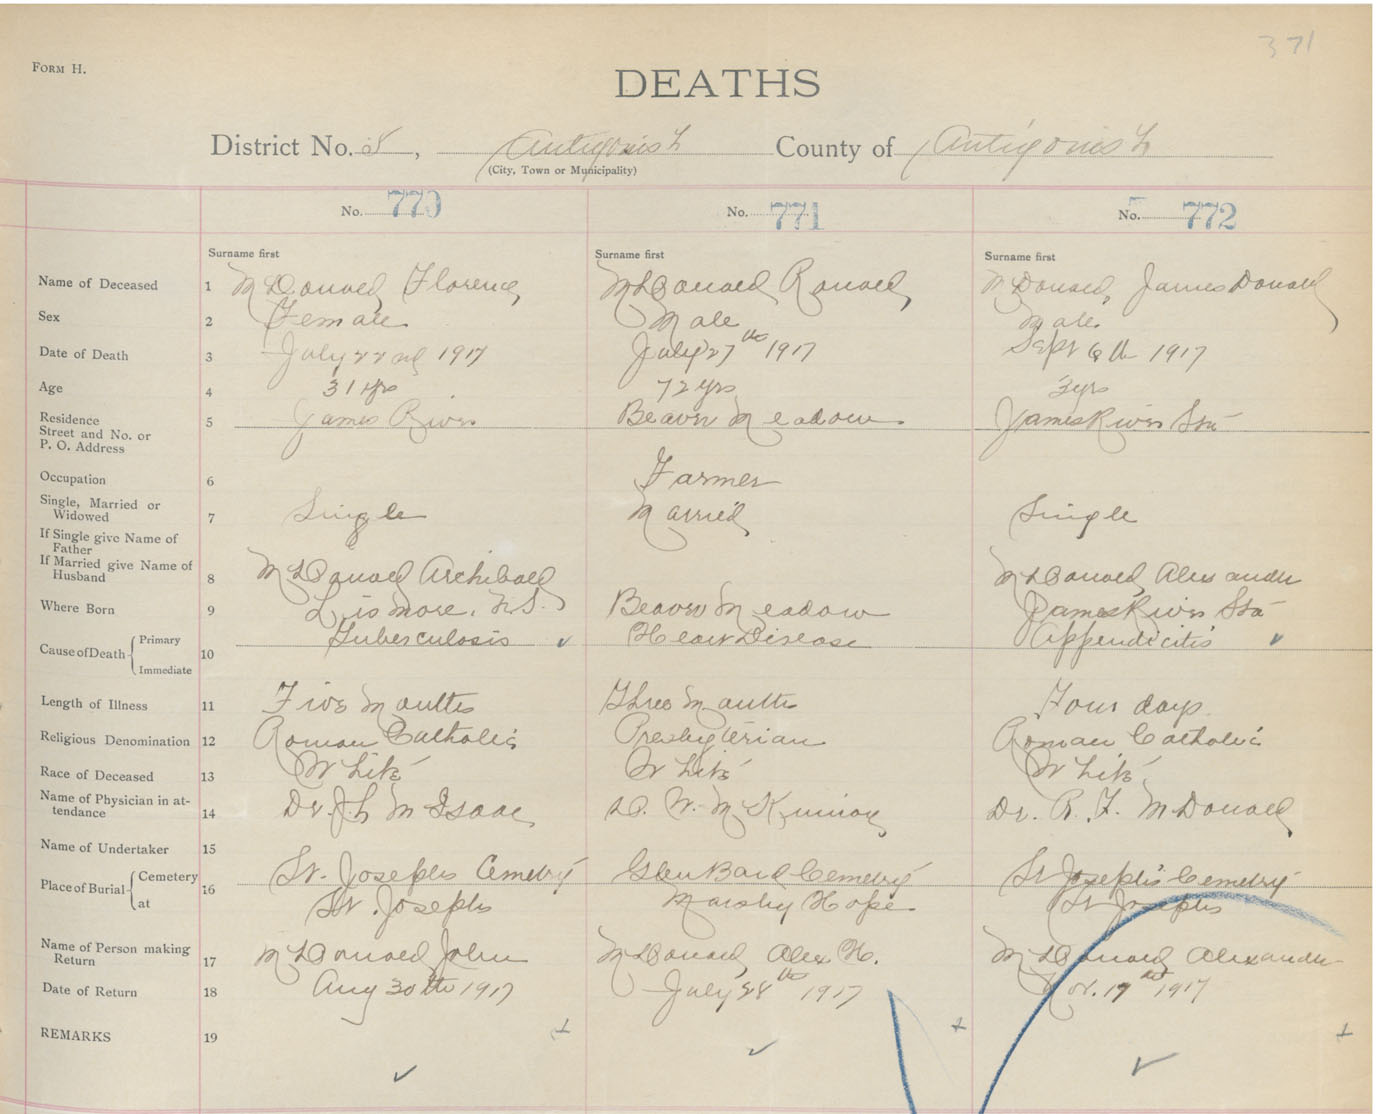 371
FORM H.
DEATHS
District No. 5, Antigonish County of Antigonish
(City, Town or Municipality)
No. 770 No. 771 No. 772
Surname first Surname first Surname first
Name of Deceased 1 McDonald, Florence, McDonald, Ronald, McDonald, James Donald
Sex 2 Female Male Male
Date of Death 3 July 22nd 1917 July 27th 1917 Sept 6th 1917
Age 4 31 yrs 72 yrs 3 yrs
Residence 5 James River Beaver Meadow James River Sta
Street and No. or
P. O. Address
Occupation 6 Farmer
Single, Married or
Widowed 7 Single Married Single
If Single give Name of
Father
If Married give Name of
Husband 8 McDonald, Archibald McDonald, Alexander
Where Born 9 Lismore, N.S. Beaver Meadow James River Sta
Cause of Death Primary 10 Tuberculosis Heart Disease Appendicitis
Immediate
Length of Illness 11 Five Months Three Months Four days
Religious Denomination 12 Roman Catholic Presbyterian Roman Catholic
Race of Deceased 13 White White White
Name of Physician in at-
tendance 14 Dr. J. L. McIsaac, McKinnon, Dr. R. F. McDonald,
Name of Undertaker 15
Place of Burial Cemetery 16 St. Josephs Cemetry Glen Bard Cemetry St Joseph's Cemetry
at St. Josephs Marshy Hope St Josephs
Name of Person making
Return 17 McDonald John McDonald, Alex H. McDonald, Alexander
Date of Return 18 Aug 30th 1917 July 28th 1917 Nov. 19th 1917
REMARKS 19